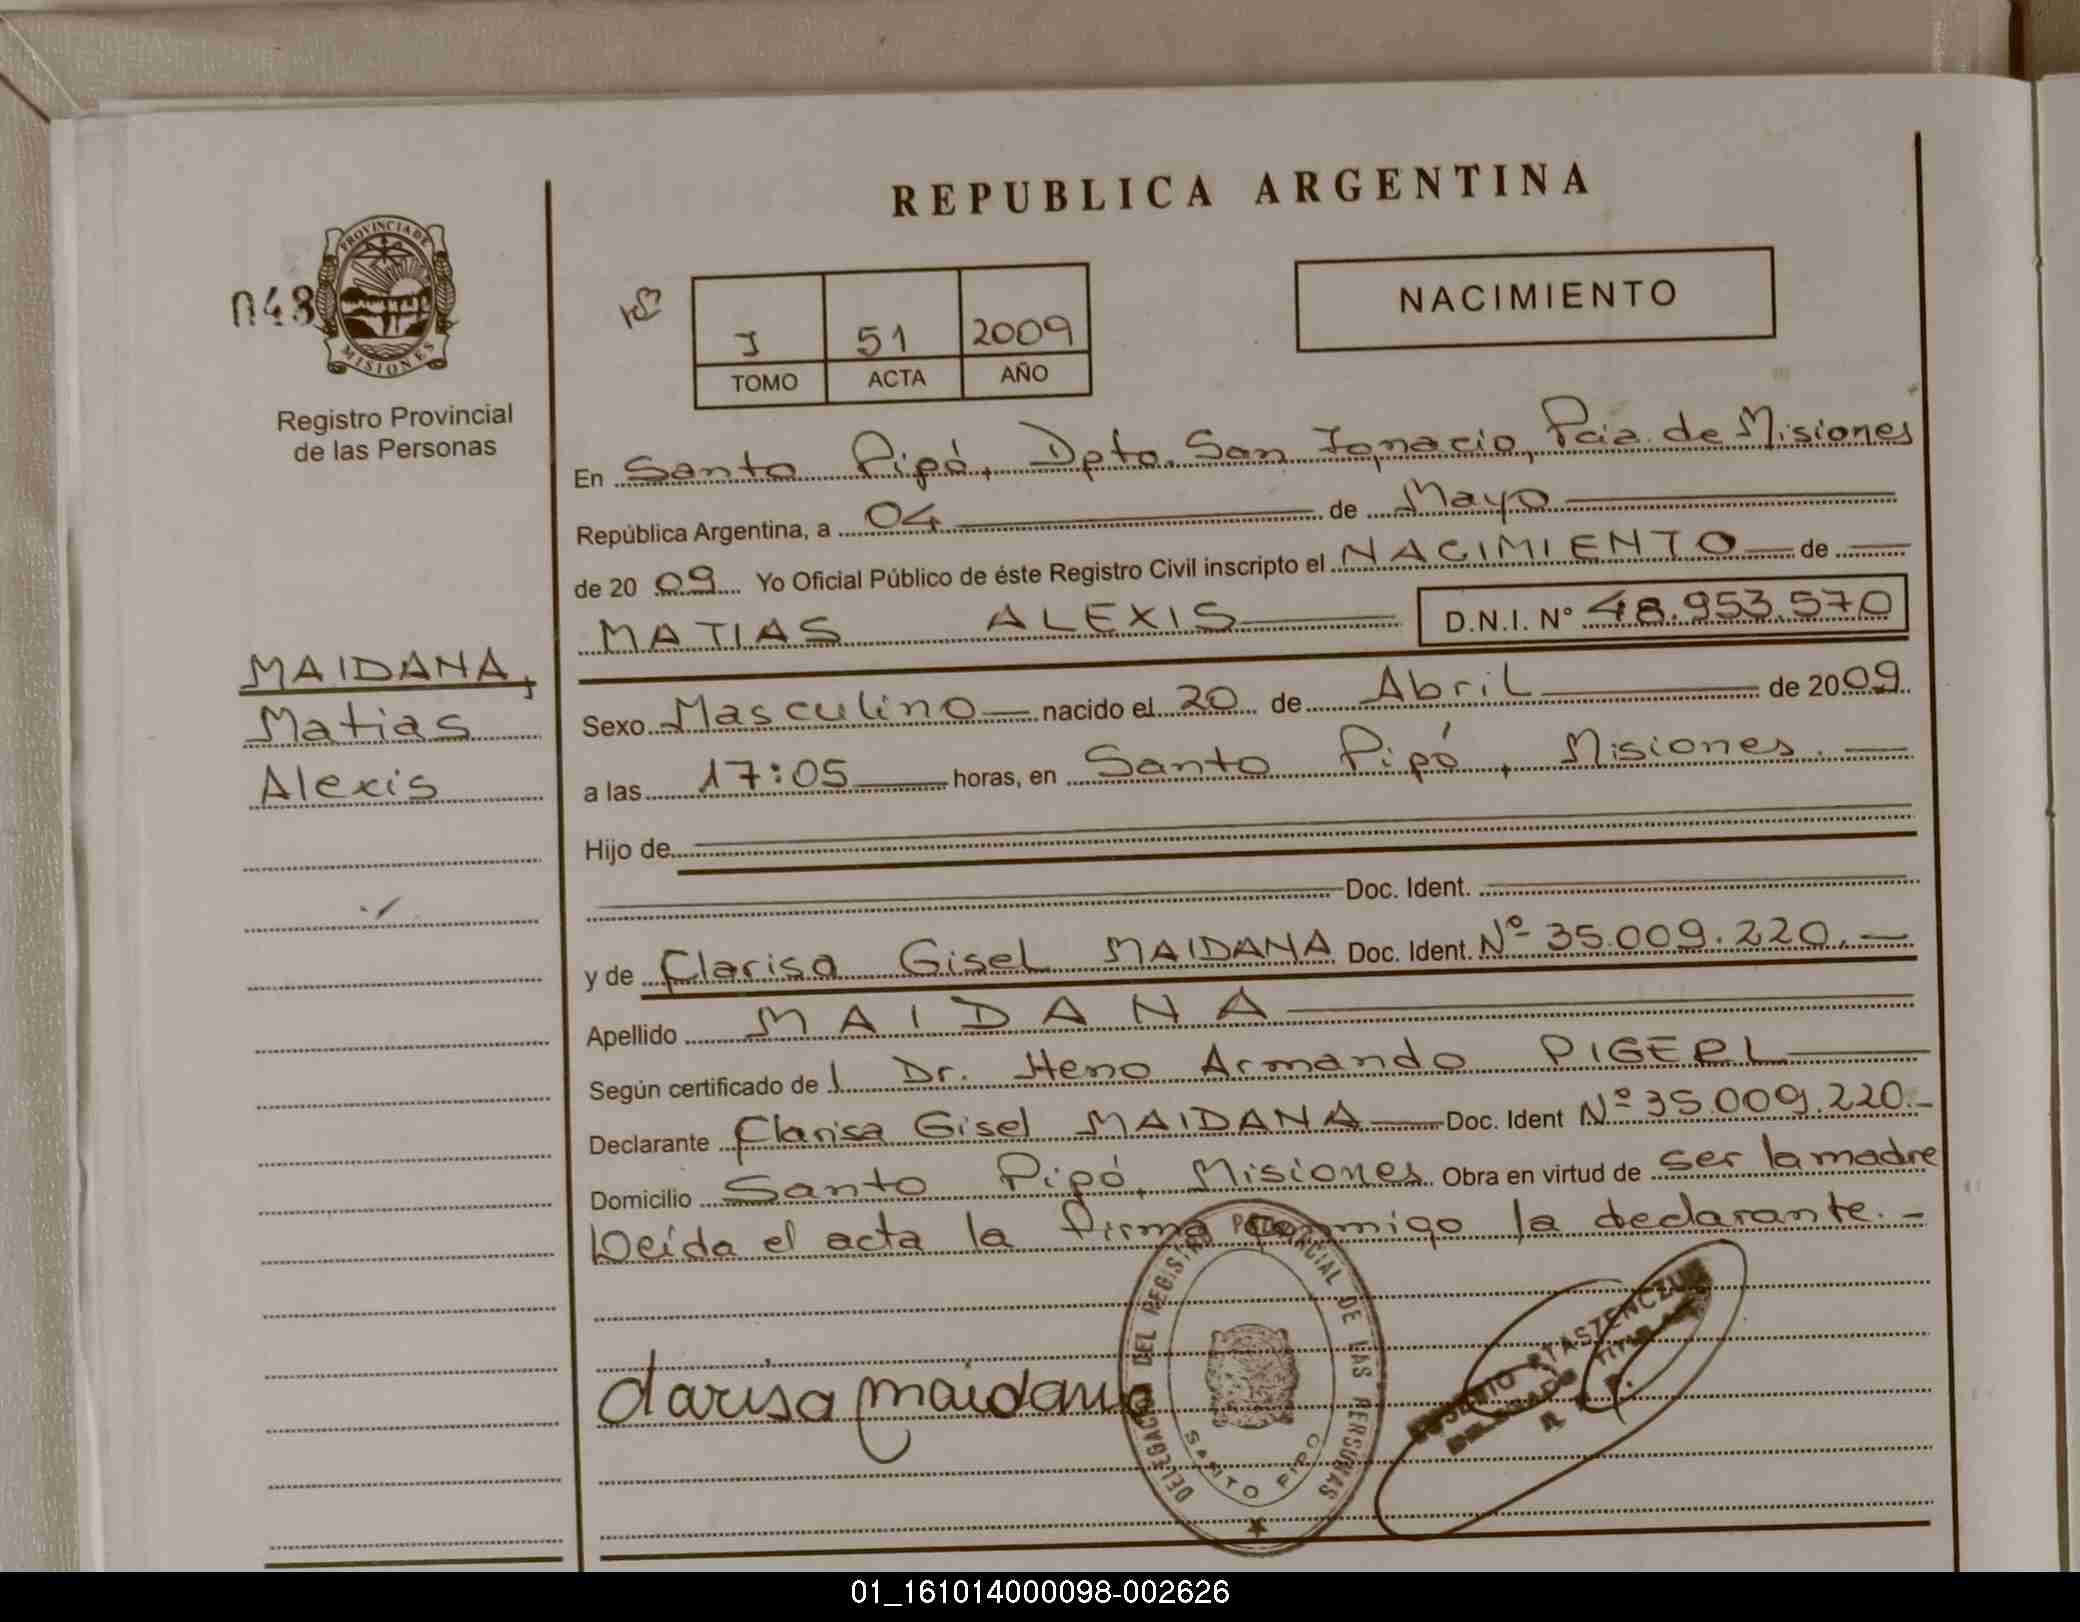 REPUBLICA ARGENTINA
048
PROVINCIA DE
MISIONES
Registro Provincial
de las Personas
J 51 2009
TOMO ACTA AÑO
NACIMIENTO
En Santo Pipó, Dpto. San Ignacio, Pcia. de Misiones
República Argentina, a 04 de Mayo
de 20 09 Yo Oficial Público de éste Registro Civil inscripto el NACIMIENTO de
MATIAS ALEXIS D.N.I. Nº 48.953.570
MAIDANA,
Matias
Alexis
Sexo Masculino nacido el 20 de Abril de 2009
a las 17:05 horas, en Santo Pipó, Misiones.
Hijo de
Doc. Ident.
y de Clarisa Gisel MAIDANA Doc. Ident. Nº 35.009.220.
Apellido MAIDANA
Según certificado del Dr. Heno Armando PIGERL
Declarante Clarisa Gisel MAIDANA Doc. Ident Nº 35.009.220.-
Domicilio Santo Pipó, Misiones Obra en virtud de ser la madre
Leída el acta la firma conmigo la declarante.-
clarisa maidana
DELEGACION DEL REGISTRO PROVINCIAL DE LAS PERSONAS
SANTO PIPO
DELEGADO TITULAR
R. P. P.
01_161014000098-002626